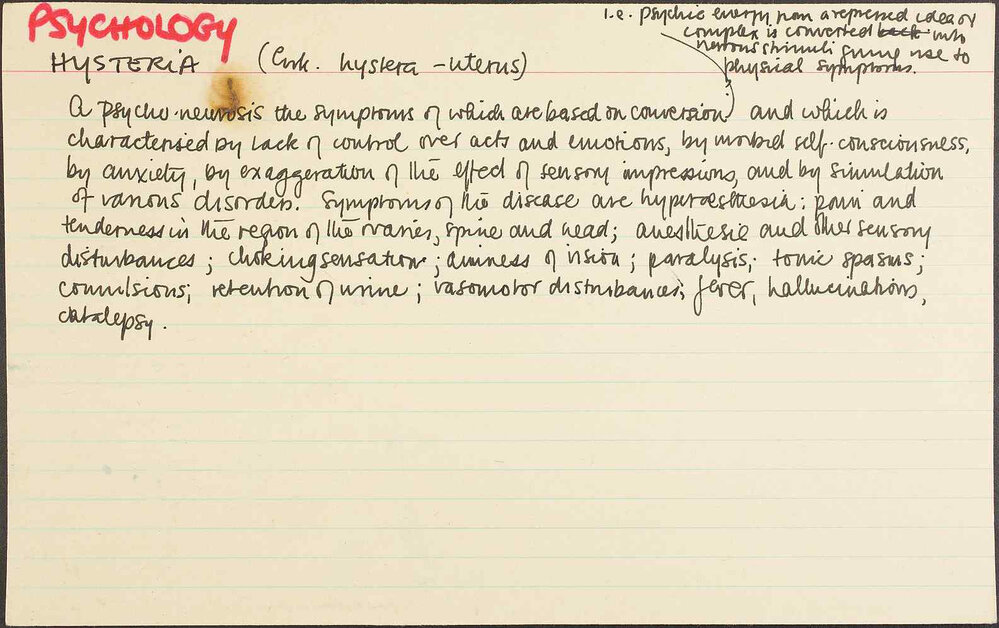 PSYCHOLOGY
i.e. psychic energy from a repressed idea or
complex is converted back into
nervous stimuli giving rise to
physical symptoms.
HYSTERIA (Grk. hystera - uterus)
A psycho-neurosis the symptoms of which are based on conversion and which is
characterised by lack of control over acts and emotions, by morbid self-consciousness,
by anxiety, by exaggeration of the effect of sensory impressions, and by simulation
of various disorders. Symptoms of the disease are hyperaesthesia: pain and
tenderness in the region of the ovaries, spine and head; anesthesie and other sensory
disturbances; choking sensation; dimness of vision; paralysis; tonic spasms;
convulsions; retention of urine; vasomotor disturbances; fever, hallucinations,
catalepsy.